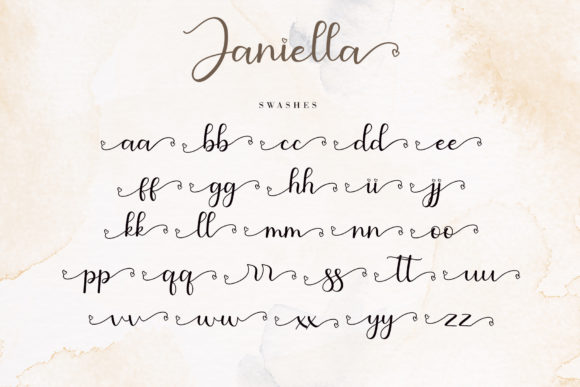 Janiella
SWASHES
aa bb cc dd ee
ff gg hh ii jj
kk ll mm nn oo
pp qq rr ss tt uu
vv ww xx yy zz